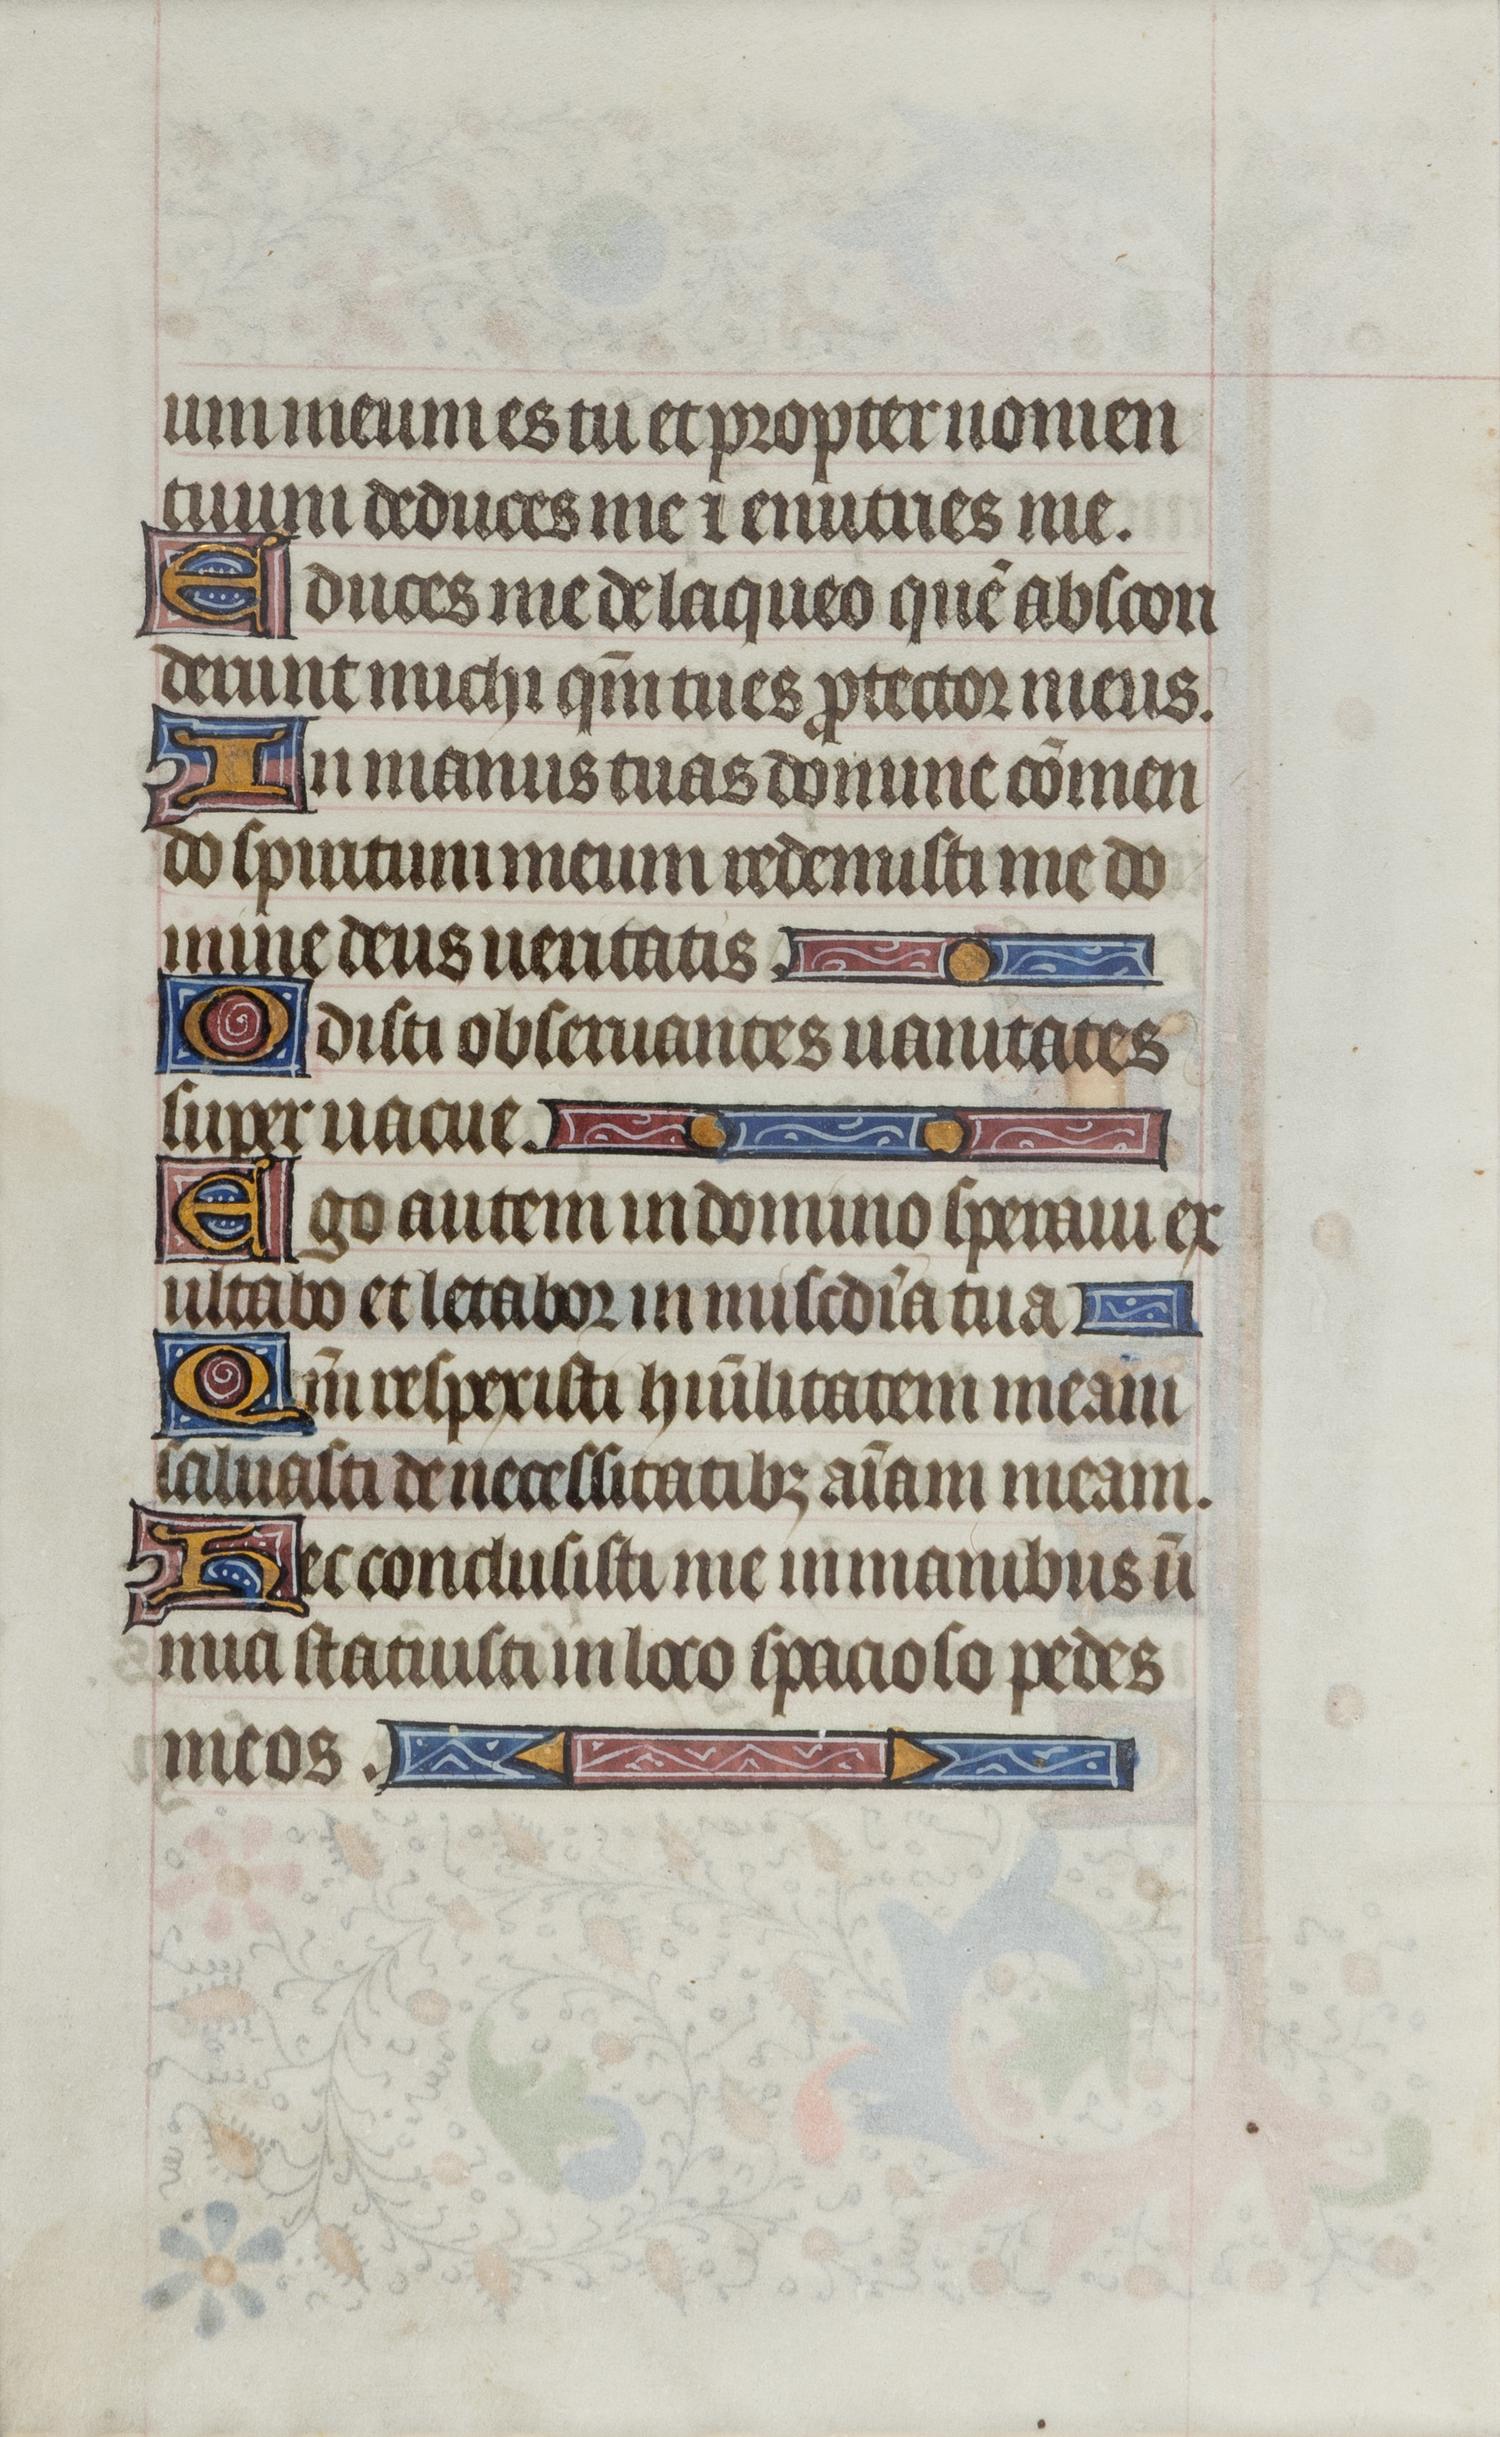 um meum es tu et propter nomen
tuum deduces me ⁊ enutries me.
Educes me de laqueo quē abscon
derunt michi qm̄ tu es ꝓtector meus.
In manus tuas domine cōmen
do spiritum meum redemisti me do
mine deus ueritatis.
Odisti obseruantes uanitates
super uacue.
Ego autem in domino speraui ex
ultabo et letabor in miscd̄ia tua
Qm̄ respexisti hūilitatem meam
saluasti de necessitatibꝫ aīam meam.
Nec conclusisti me in manibus ū
nuci statuisti in loco spacioso pedes
meos.